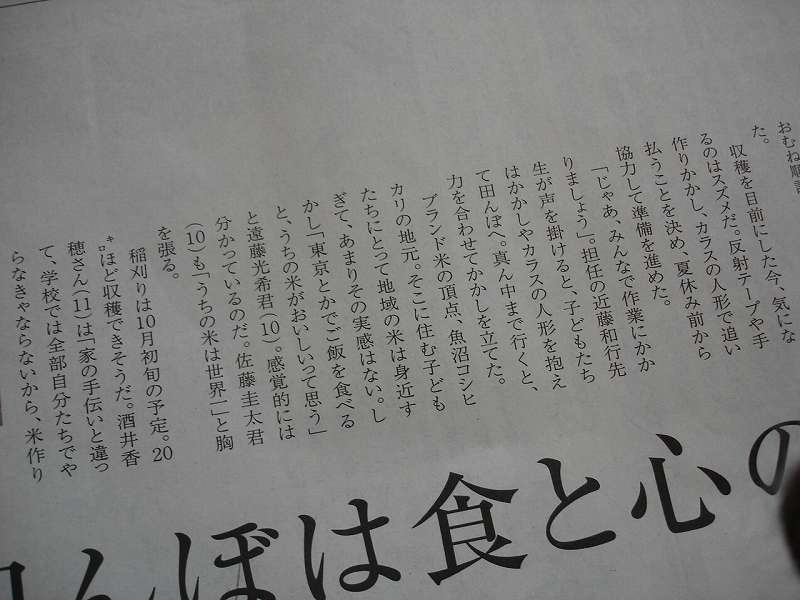 おむね順調
た。
収穫を目前にした今、気にな
るのはスズメだ。反射テープや手
作りかかし、カラスの人形で追い
払うことを決め、夏休み前から
協力して準備を進めた。
「じゃあ、みんなで作業にかか
りましょう」。担任の近藤和行先
生が声を掛けると、子どもたち
はかかしやカラスの人形を抱え
て田んぼへ。真ん中まで行くと、
力を合わせてかかしを立てた。
ブランド米の頂点、魚沼コシヒ
カリの地元。そこに住む子ども
たちにとって地域の米は身近す
ぎて、あまりその実感はない。し
かし「東京とかでご飯を食べる
と、うちの米がおいしいって思う」
と遠藤光希君(10)。感覚的には
分かっているのだ。佐藤圭太君
(10)も「うちの米は世界一」と胸
を張る。
稲刈りは10月初旬の予定。20
キロほど収穫できそうだ。酒井香
穂さん(11)は「家の手伝いと違っ
て、学校では全部自分たちでや
らなきゃならないから、米作り
んぼは食と心の